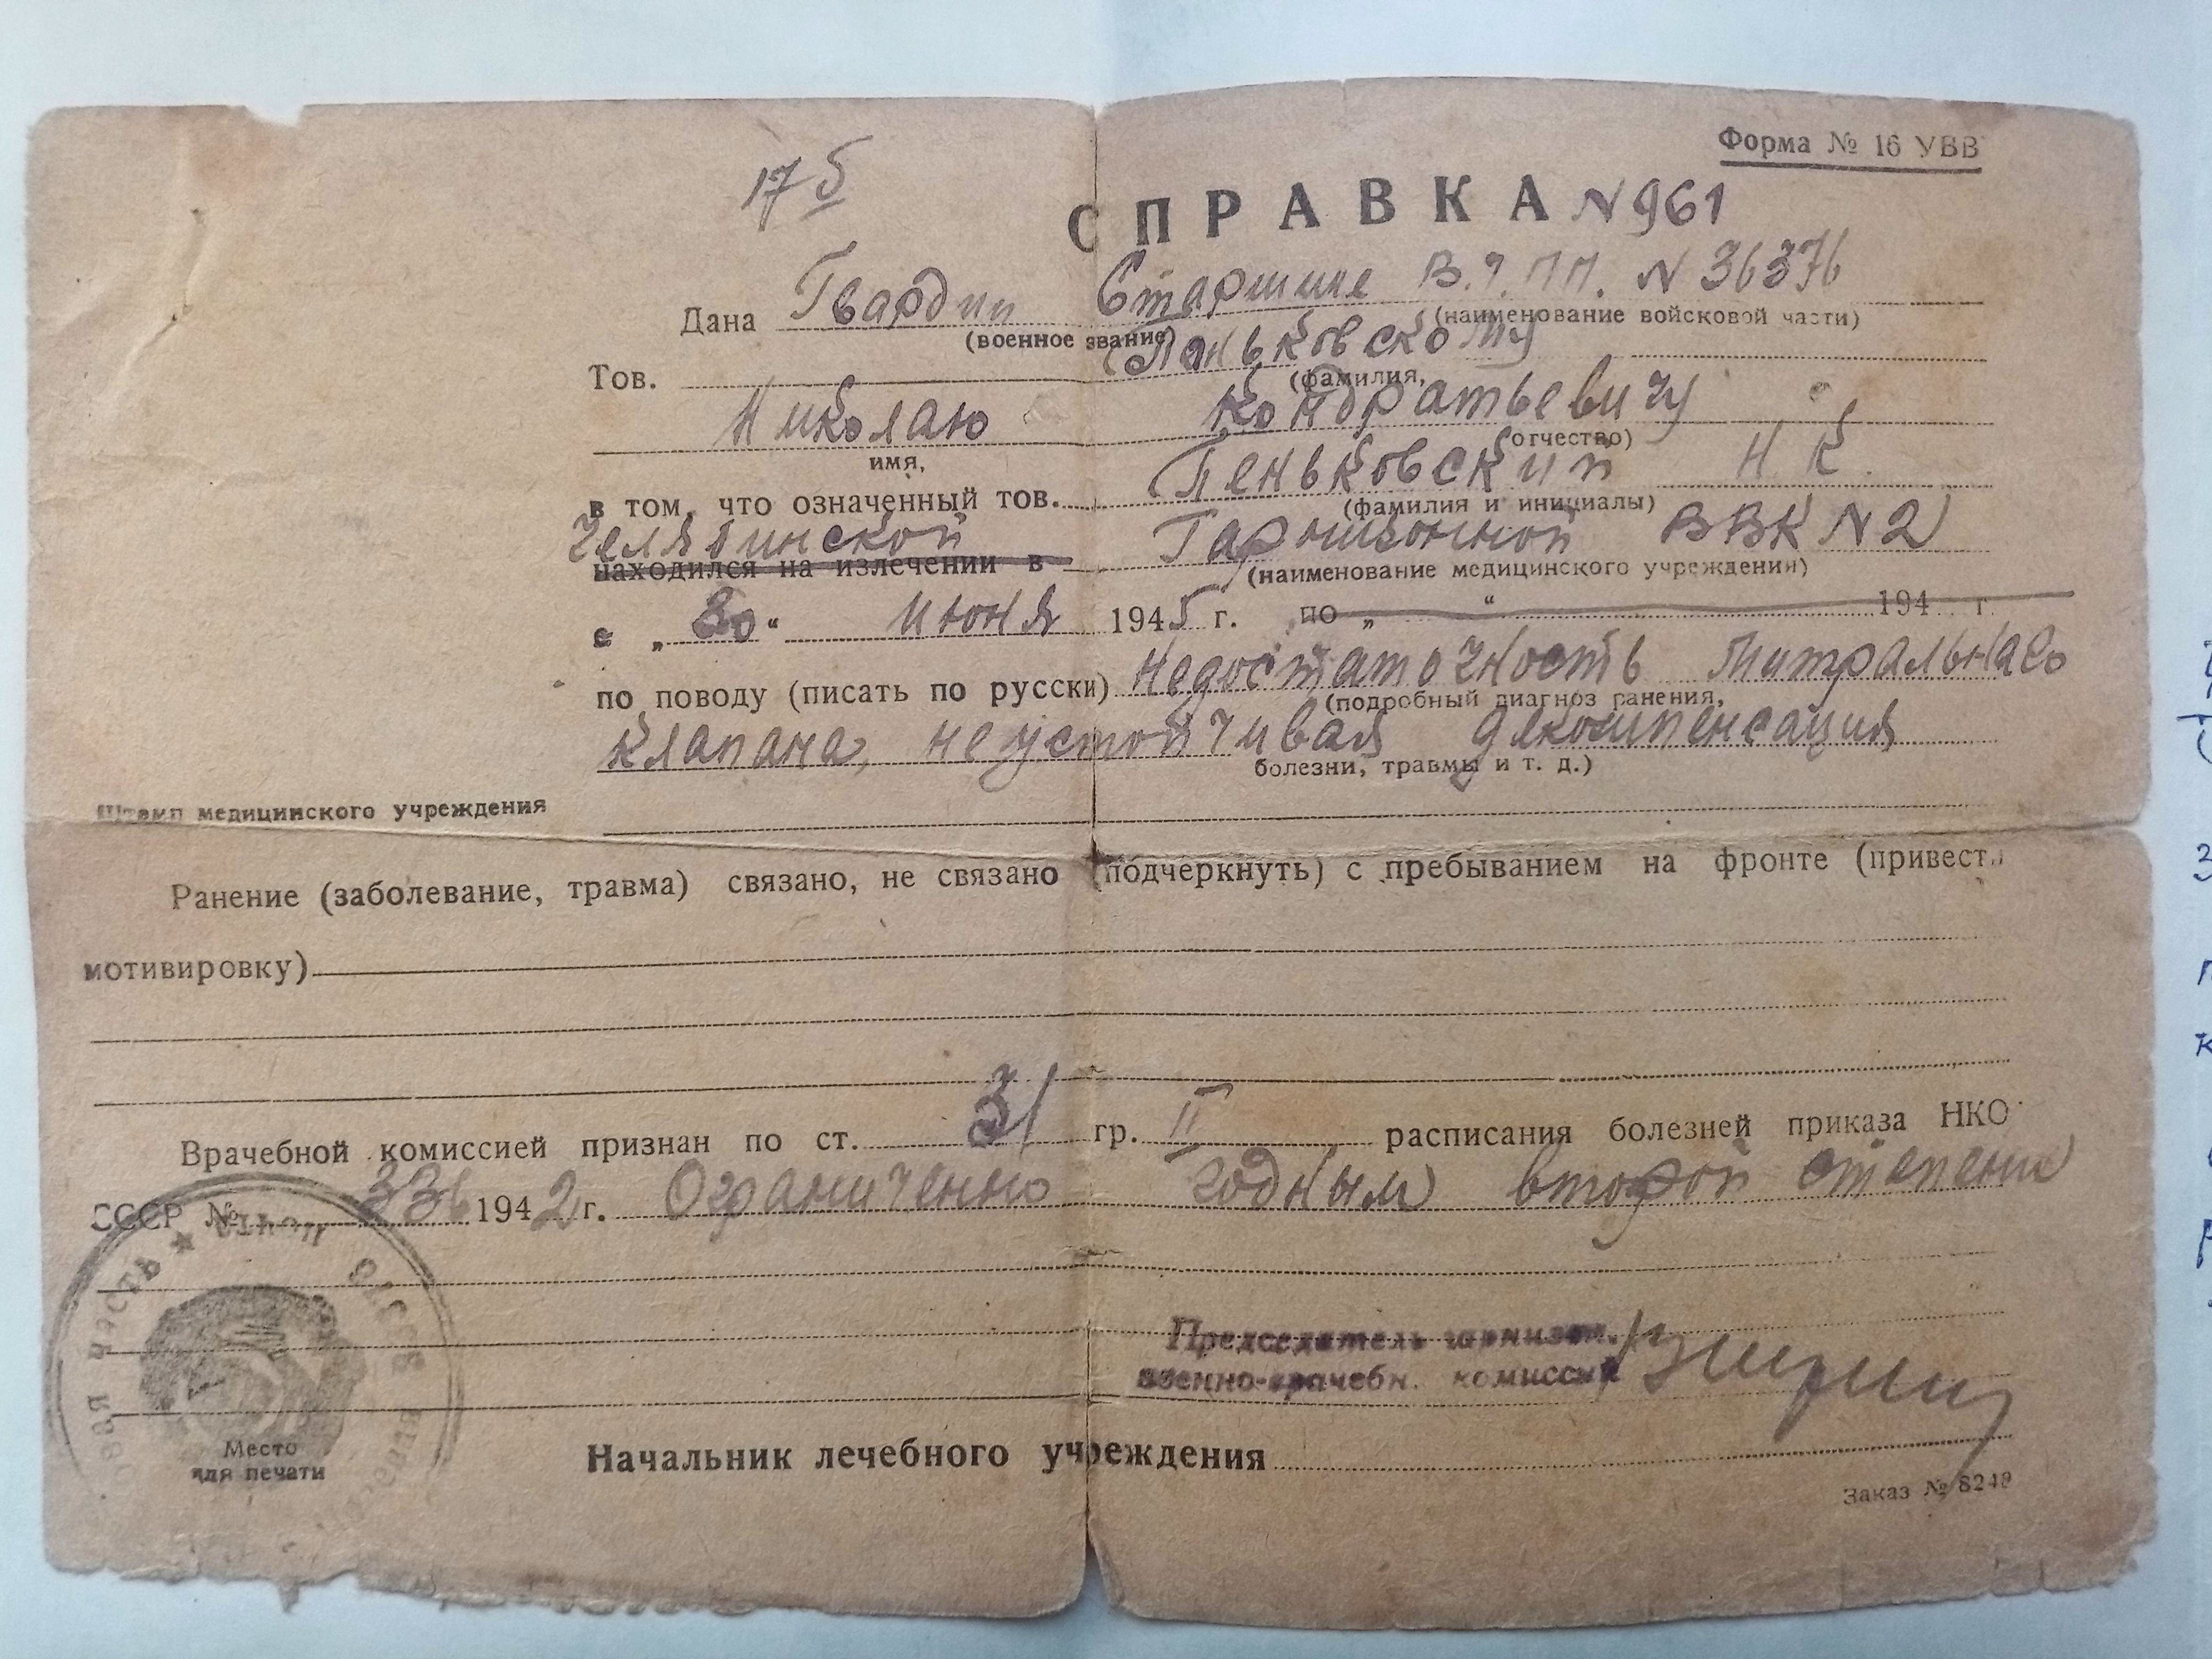 Форма № 16 УВВ
17 б
СПРАВКА N 961
Дана Гвардии Старшине В.Ч.П.П. N 36376
(военное звание) (наименование войсковой части)
Тов. Паньковскому
(фамилия,
Николаю Кондратьевичу
имя, отчество)
в том, что означенный тов. Пеньковский Н К.
(фамилия и инициалы)
Челябинской Гарнизонной ВВК N 2
находился на излечении в (наименование медицинского учреждения)
с „30“ июня 1945 г. по „ “ 194 г.
по поводу (писать по русски) Недостаточность митрального
(подробный диагноз ранения,
клапана, неустойчивая декомпенсация
болезни, травмы и т. д.)
Штамп медицинского учреждения
Ранение (заболевание, травма) связано, не связано (подчеркнуть) с пребыванием на фронте (привести
мотивировку)
Врачебной комиссией признан по ст. 31 гр. II расписания болезней приказа НКО
СССР № 336 1942 г. Ограниченно годным второй степени
Председатель гарнизон.
военно-врачебн. комиссии
Место
для печати
Начальник лечебного учреждения
Заказ № 8249